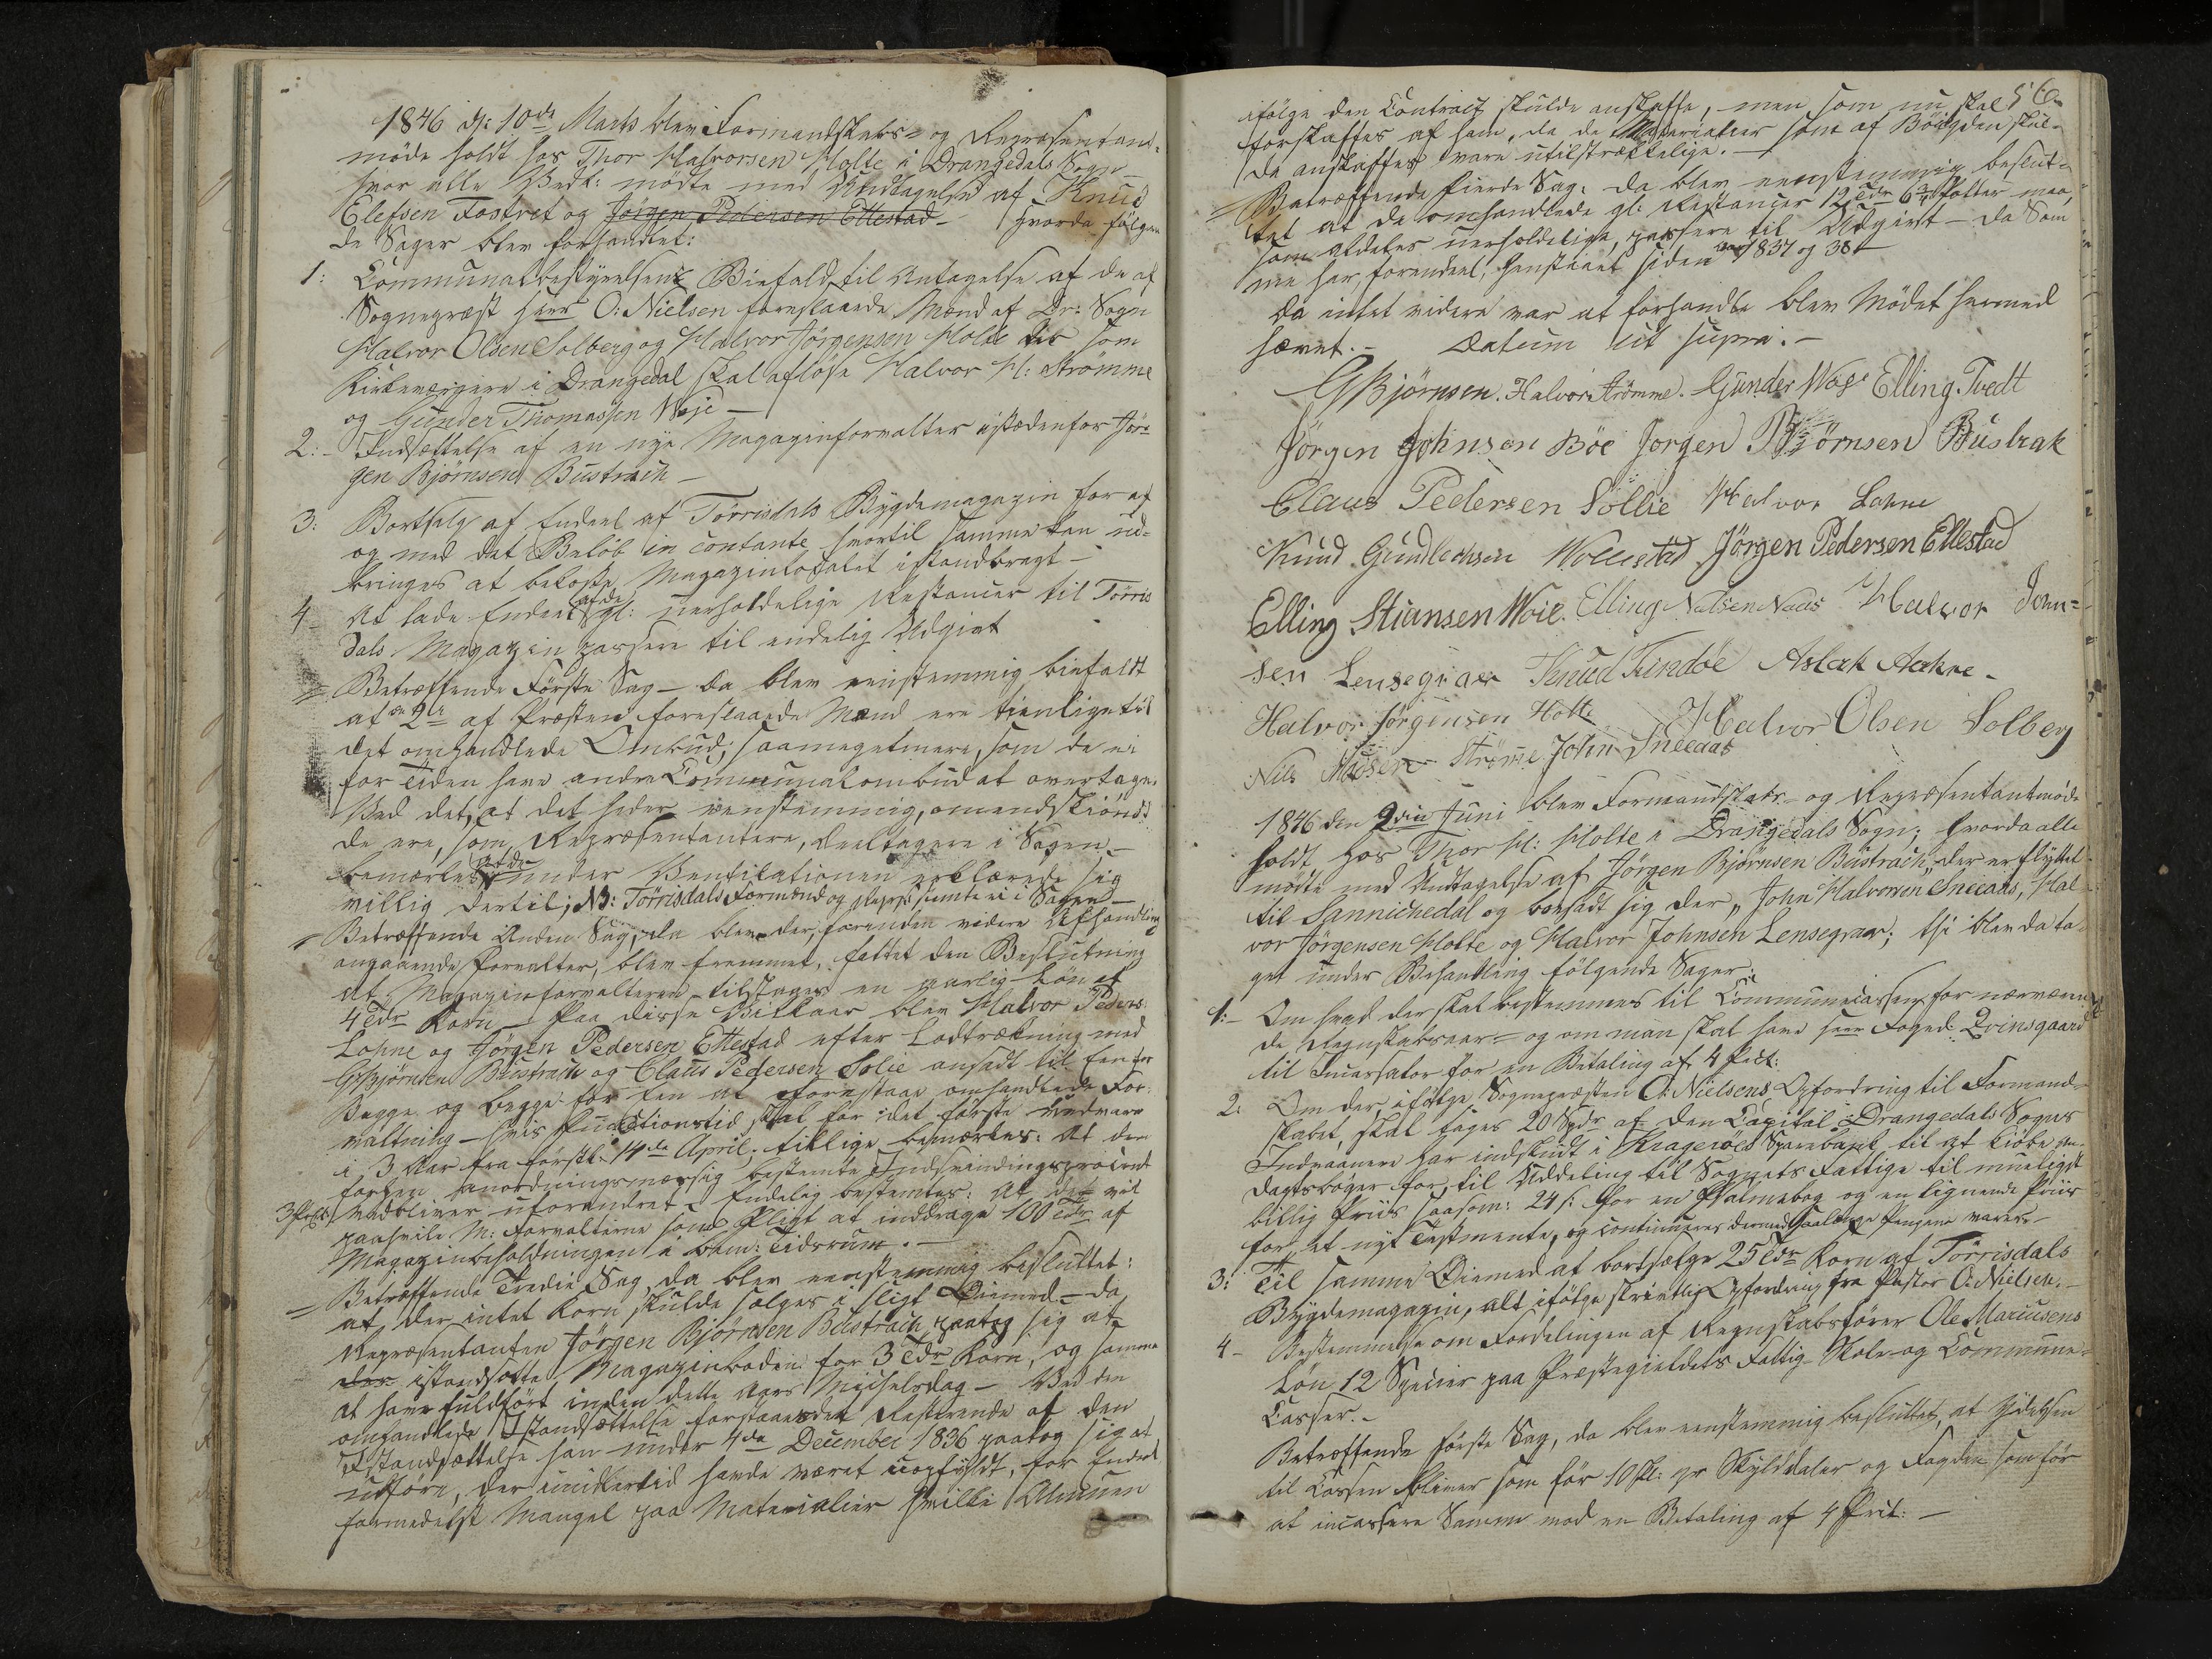 1846 d: 10de Marts blev Formandskabs- og Repræsentant-
møde holdt hos Thor Halvorsen Holte i Drangedals Sogn
hvor alle Vedk: mødte med Undtagelse af Knud
Elefsen Fostvet og Jørgen Pedersen Ettestad - hvorda følgen-
de Sager blev forhandlet:
1: Communalbestyrelsens Biefald til Antagelse af de af
Sognepræst Herr O: Nielsen foreslaaede Mænd af Dr: Sogn
Halvor Olsen Solberg og Halvor Jørgensen Holte der som
Kirkeværgere i Drangedal skal afløse Halvor H: Strømme
og Gunder Thomassen Woje -
2:- Indsættelse af en nye Magazinforvalter istedenfor Jør-
gen Bjørnsen Bustrach -
3: Bortsalg af Endeel af Tørrisdals Bygdemagazin for af
og med det Beløb in contante hvortil samme kan ud-
bringes at bekoste Magazinlocalet istandbragt -
4- At lade Endeel af de gl: uerholdelige Restancer til Tørris
dals Magazin passere til endelig Udgivt
= Betræffende Første Sag - da blev eenstemmig biefaldt
at de 2de af Præsten foreslaaede Mænd ere tienlige til
det omhandlede Ombud; saameget mere, som de ei
for Tiden have andre Communalombud at overtage.
Ved det, at det heder eenstemmig, omendskiøndt
de ere, som Repræsentantere, deeltagere i Sagen -
bemærkes at de under Ventilationen erklærede sig
villig dertil; NB: Tørrisdals Formænd og Repræs: stemte ei i Sagen -
= Betræffende Anden Sag, da blev der, forinden videre Afhandling
angaaende Forvalter, blev fremmet, fattet den Beslutning
at Magazinforvalteren tilstaaes en aarlig Løn af
4 Tdr Korn - Paa disse Vilkaar blev Halvor Peders:
Lohne og Jørgen Pedersen Ettestad efter Lodtrækning med
GBjørnsen Bustrach og Claus Pedersen Solie ansadt til Een for
Begge og begge for Een at forestaae omhandlede For-
valtning - hvis Functionstid skal for det første vedvare
i 3 Aar fra førstk: 14de April; tillige bemærkes: At den
forhen anordningsmæssig bestemte Indsvindingsprocent
3 Prct: vedbliver uforandret - Endelig bestemtes: At det vil
paahvile M: Forvalterne som Pligt at inddrage 100 Tdr af
Magazinbeholdningen i bem: Tidsrum. -
= Betræffende Tredie Sag, da blev eenstemmig besluttet:
at der intet Korn skulde sælges i sligt Øiemed - da
Repræsentanten Jørgen Bjørnsen Bustrach paatog sig at
der istandsætte Magazinboden for 3 Tdr Korn, og samme
at have fuldført inden dette Aars Michelsdag - Ved den
omhandlede Istandsættelse forstaaes det Resterende af den
Istandsættelse han under 4de December 1836 paatog sig at
udføre, der imidlertid havde været uopfyldt, for Endeel
formedelst Mangel paa Materialier hvilke Almuen
56.
ifølge den Contract skulde anskaffe, men som nu skal
forskaffes af ham, da de Materialier som af Bøigden skul-
de anskaffes vare utilstrækkelige. -
= Betræffende fierde Sag: da blev eenstemmig beslut-
tet at de omhandlede gl: Restancer 12 Tdr 6¾ Potter maa,
som aldeles uerholdelige, passere til Udgivt - da Sam
me har, forendeel, henstaaet siden 1837 og 38 -
Da intet videre var at forhandle blev Mødet hermed
hævet. - Datum ut supra. -
GBjørnsen. Halvor Strømme. Gunder Woje Elling Tvedt
Jørgen Johnsen Böe Jorgen Bjørnsen Bustrak
Claus Pedersen Sollie Halvor Lohne
Knud Gundlechsen Wollestad Jörgen Pedersen Ettestad
Elling Stiansen Woie. Elling Nilsen Naas Halvor John=
sen Lensegrav Knud Tindöe Aslak Aakre -
Halvor Jørgensen Holte Halvor Olsen Solberg
Nils Strømme John Sneeaas
1846 den 9din Juni blev Formandskabs- og Repræsentantmøde
holdt hos Thor H: Holte i Drangedals Sogn; hvorda alle
mødte med Undtagelse af Jørgen Bjørnsen Bustrach, der er flyttet
til Sannichedal og bosadt sig der, John Halvorsen Sneeaas, Hal
vor Jørgensen Holte og Halvor Johnsen Lensegrav; thi blev da ta-
get under Behandling følgende Sager:
1:- Om hvad der skal bestemmes til Communecassen for nærværen-
de Regnskabsaar - og om man skal have Herr Foged Qvinsgaard
til Incassator for en Betaling af 4 Prct:
2: Om der, ifølge Sognepræsten O: Nielsens Opfordring til Formand-
skabet, skal tages 20 Spdr af den Capital Drangedals Sogns
Indvaanere har indskudt i Kragerøes Sparebank til at kiøbe An-
dagtsbøger for, til Uddeling til Sognets Fattige til mueligst
billig Priis saasom: 24 s: for en Psalmebog og en lignende Priis
for et nyt Testmente, og continueres dermed saalænge Pengene varer. -
3: Til samme Øiemed at bortsælge 25 Tdr Korn af Tørrisdals
Bygdemagazin, alt ifølge skrivtlig Opfordring fra Pastor O: Nielsen. -
4- Bestemmelse om Fordelingen af Regnskabsfører Ole Mariusens
Løn 12 Specier paa Præstegieldets Fattig- Skole- og Commune-
Casser. -
Betræffende første Sag, da blev eenstemmig besluttet, at Ydelsen
til Cassen bliver som før 10 sk: pr Skylddaler og Fogden som før
at incassere Samme mod en Betaling af 4 Prct: -